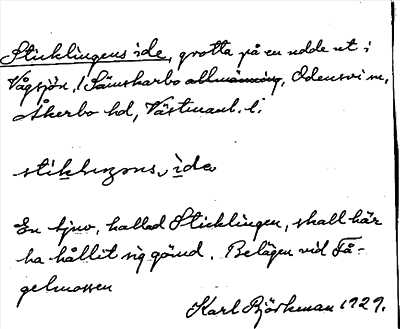 Sticklingens ide, grotta på en udde ut i
Vågsjön, i Sämskarbo allmänning, Odensvi sn,
Åkerbo hd, Västmanl. l.
En tjuv, kallad Sticklingen, skall här
ha hållit sig gömd. Belägen vid Få-
gelmossen
Karl Björkman 1929.